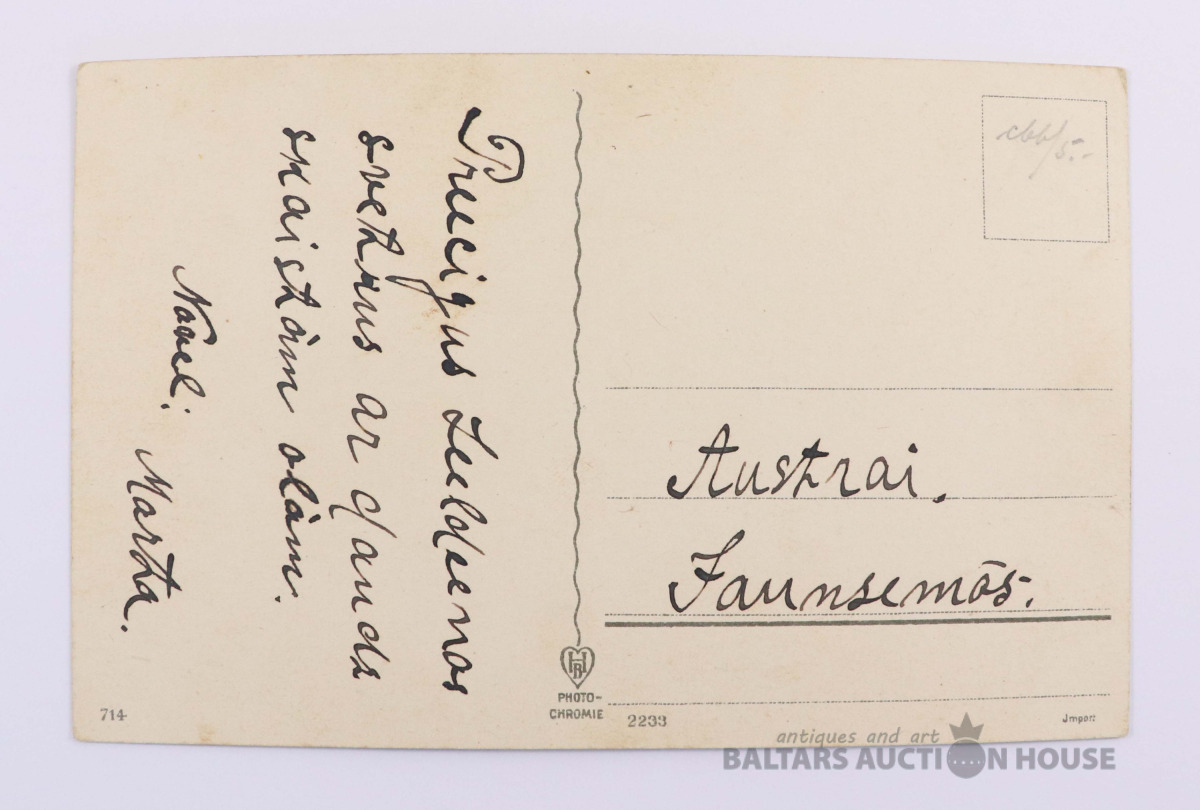 Preecigus Leeldeenas
svehtkus ar daudz
skaistām olām.
Novēl:
Martha.
Austrai.
Jaunsemēs.
HB
PHOTO-
CHROMIE
714
2233
Import
antiques and art
BALTARS AUCTION HOUSE